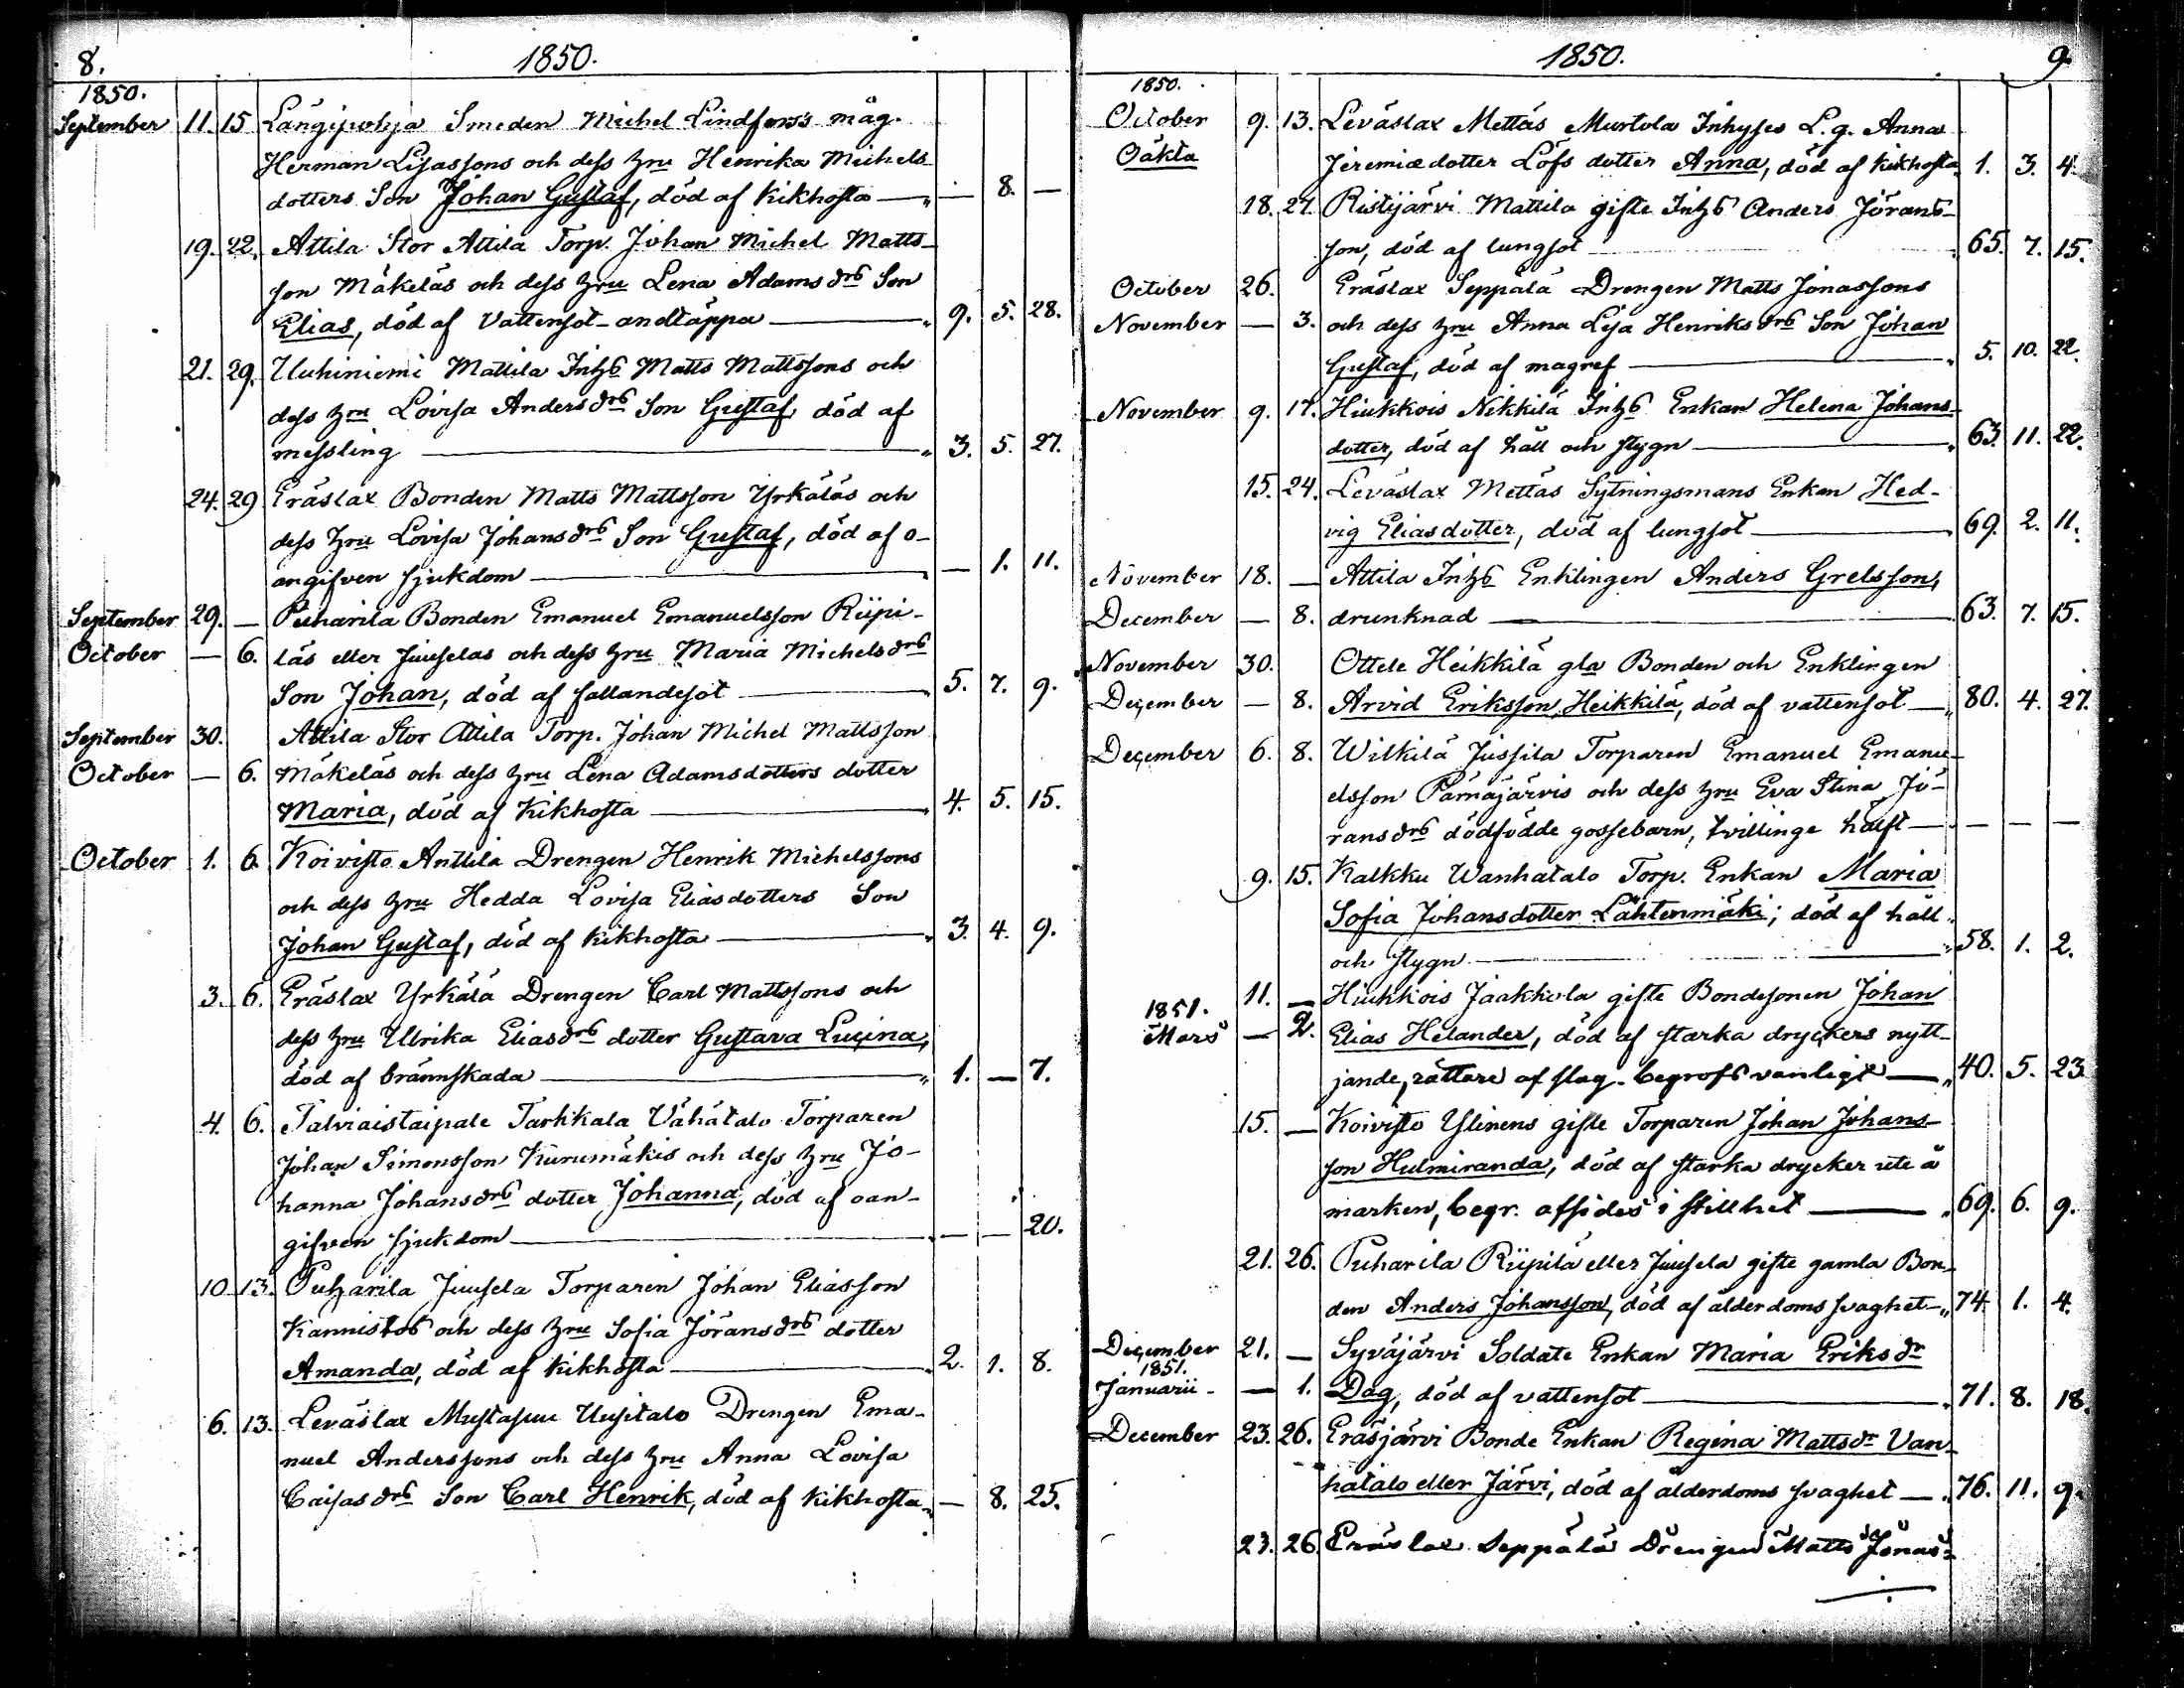 8. 1850.
1850.
September 11. 15 Längipohja Smeden Michel Lindfors's måg.
Herman Lisassons och dess hru Henrika Michels-
dotters Son Johan Gustaf, död af Kikhosta — — 8. —
19. 22. Attila Stor Attila Torp. Johan Michel Matts-
son Mäkeläs och dess hru Lena Adams drs Son
Elias, död af Vattensot - andtäppa — 9. 5. 28.
21. 29. Uuhiniemi Mattila Inhs Matts Mattssons och
dess hru Lovisa Anders drs Son Gustaf, död af
messling — 3. 5. 27.
24. 29 Eräslax Bonden Matts Mattsson Yrkäläs och
dess hru Lovisa Johans drs Son Gustaf, död af o-
angifven sjukdom — — 1. 11.
September 29. — Puharila Bonden Emanuel Emanuelsson Riipi-
October — 6. läs eller Juuselas och dess hru Maria Michels drs
Son Johan, död af fallandesot — 5. 7. 9.
September 30. Attila Stor Attila Torp. Johan Michel Mattsson
October — 6. Mäkeläs och dess hru Lena Adamsdotters dotter
Maria, död af Kikhosta — 4. 5. 15.
October 1. 6. Koivisto Anttila Drengen Henrik Michelssons
och dess hru Hedda Lovisa Eliasdotters Son
Johan Gustaf, död af Kikhosta — 3. 4. 9.
3. 6. Eräslax Yrkälä Drengen Carl Mattssons och
dess hru Ulrika Elias drs dotter Gustava Lucina,
död af brännskada — 1. — 7.
4. 6. Talviaistaipale Tarkkala Vähätalo Torparen
Johan Simonsson Kurumäkis och dess hru Jo-
hanna Johans drs dotter Johanna, död af oan-
gifven sjukdom — — — 20.
10 13. Puharila Juusela Torparen Johan Eliasson
Kannistos och dess hru Sofia Jörans drs dotter
Amanda, död af Kikhosta — 2. 1. 8.
6. 13. Leväslax Mustasuu Uusitalo Drengen Ema-
nuel Anderssons och dess hru Anna Lovisa
Caisas drs Son Carl Henrik, död af Kikhosta — 8. 25.
1850. 9.
1850.
October 9. 13. Leväslax Mettäs Murtola Inhyses L. q. Anna
Oäkta Jeremiædotter Löfs dotter Anna, död af Kikhosta 1. 3. 4.
18. 27. Ristijärvi Mattila gifte Inhs Anders Jörans-
son, död af lungsot — 65. 7. 15.
October 26. Eräslax Seppälä Drengen Matts Jonassons
November — 3. och dess hru Anna Lisa Henriks drs Son Johan
Gustaf, död af magref — 5. 10. 22.
November 9. 17. Hiukkois Nikkilä Inhs Enkan Helena Johans-
dotter, död af håll och stygn — 63. 11. 22.
15. 24. Leväslax Mettäs Sytningsmans Enkan Hed-
vig Eliasdotter, död af lungsot — 69. 2. 11.
November 18. — Attila Inhs Enklingen Anders Grelsson,
December — 8. drunknad — 63. 7. 15.
November 30. Ottele Heikkilä gla Bonden och Enklingen
December — 8. Arvid Eriksson Heikkilä, död af vattensot — 80. 4. 27.
December 6. 8. Wilkilä Jussila Torparen Emanuel Emanu-
elsson Pärnäjärvis och dess hru Eva Stina Jö-
rans drs dödfödde gossebarn, tvillinge hälft — — — —
9. 15. Kalkku Wanhatalo Torp. Enkan Maria
Sofia Johansdotter Lähtenmäki; död af håll
och stygn — 58. 1. 2.
1851. 11. — Hiukkois Jaakkola gifte Bondesonen Johan
Mars — 2. Elias Helander, död af starka dryckers nytt-
jande, rättare af slag - begrofs vanligt — 40. 5. 23.
15. — Koivisto Ylinens gifte Torparen Johan Johans-
son Hulmiranda, död af starka drycker ute å
marken, begr. affides i stillhet — 69. 6. 9.
21. 26. Puharila Riipilä eller Juusela gifte gamla Bon-
den Anders Johansson, död af ålderdoms svaghet — 74. 1. 4.
December 21. — Syväjärvi Soldate Enkan Maria Eriks dr
1851.
Januarii — 1. Dag, död af vattensot — 71. 8. 18.
December 23. 26. Eräsjärvi Bonde Enkan Regina Matts dr Van-
hatalo eller Järvi, död af ålderdoms svaghet — 76. 11. 9.
23. 26. Eräslax Seppälä Drengen Matts Jonas-